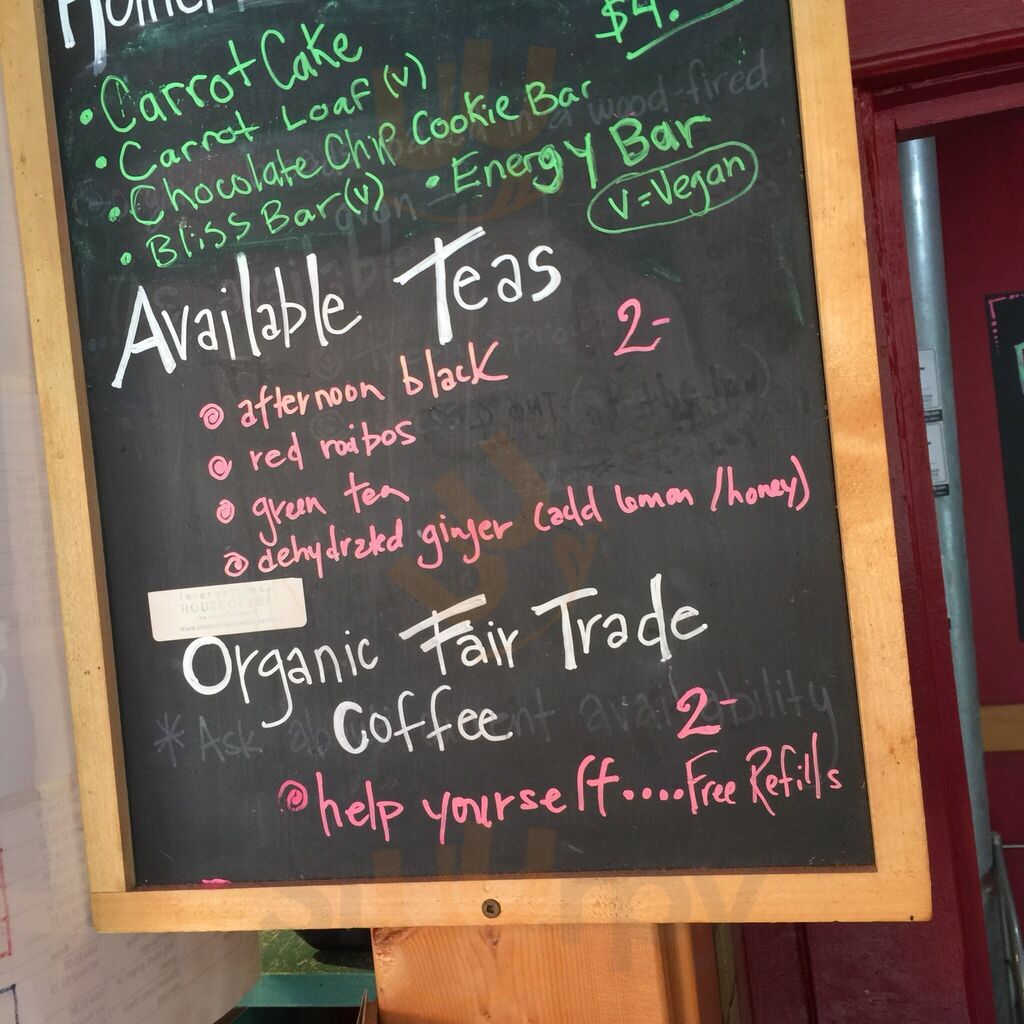 $4.
• Carrot Cake
• Carrot Loaf (v)
• Chocolate Chip Cookie Bar
• Bliss Bar (v) • Energy Bar
v = Vegan
Available Teas
2-
afternoon black
red roibos
green tea
dehydrated ginger (add lemon /honey)
HOUSE OF TEA
Organic Fair Trade
Coffee 2-
* Ask availability
help yourself....Free Refills